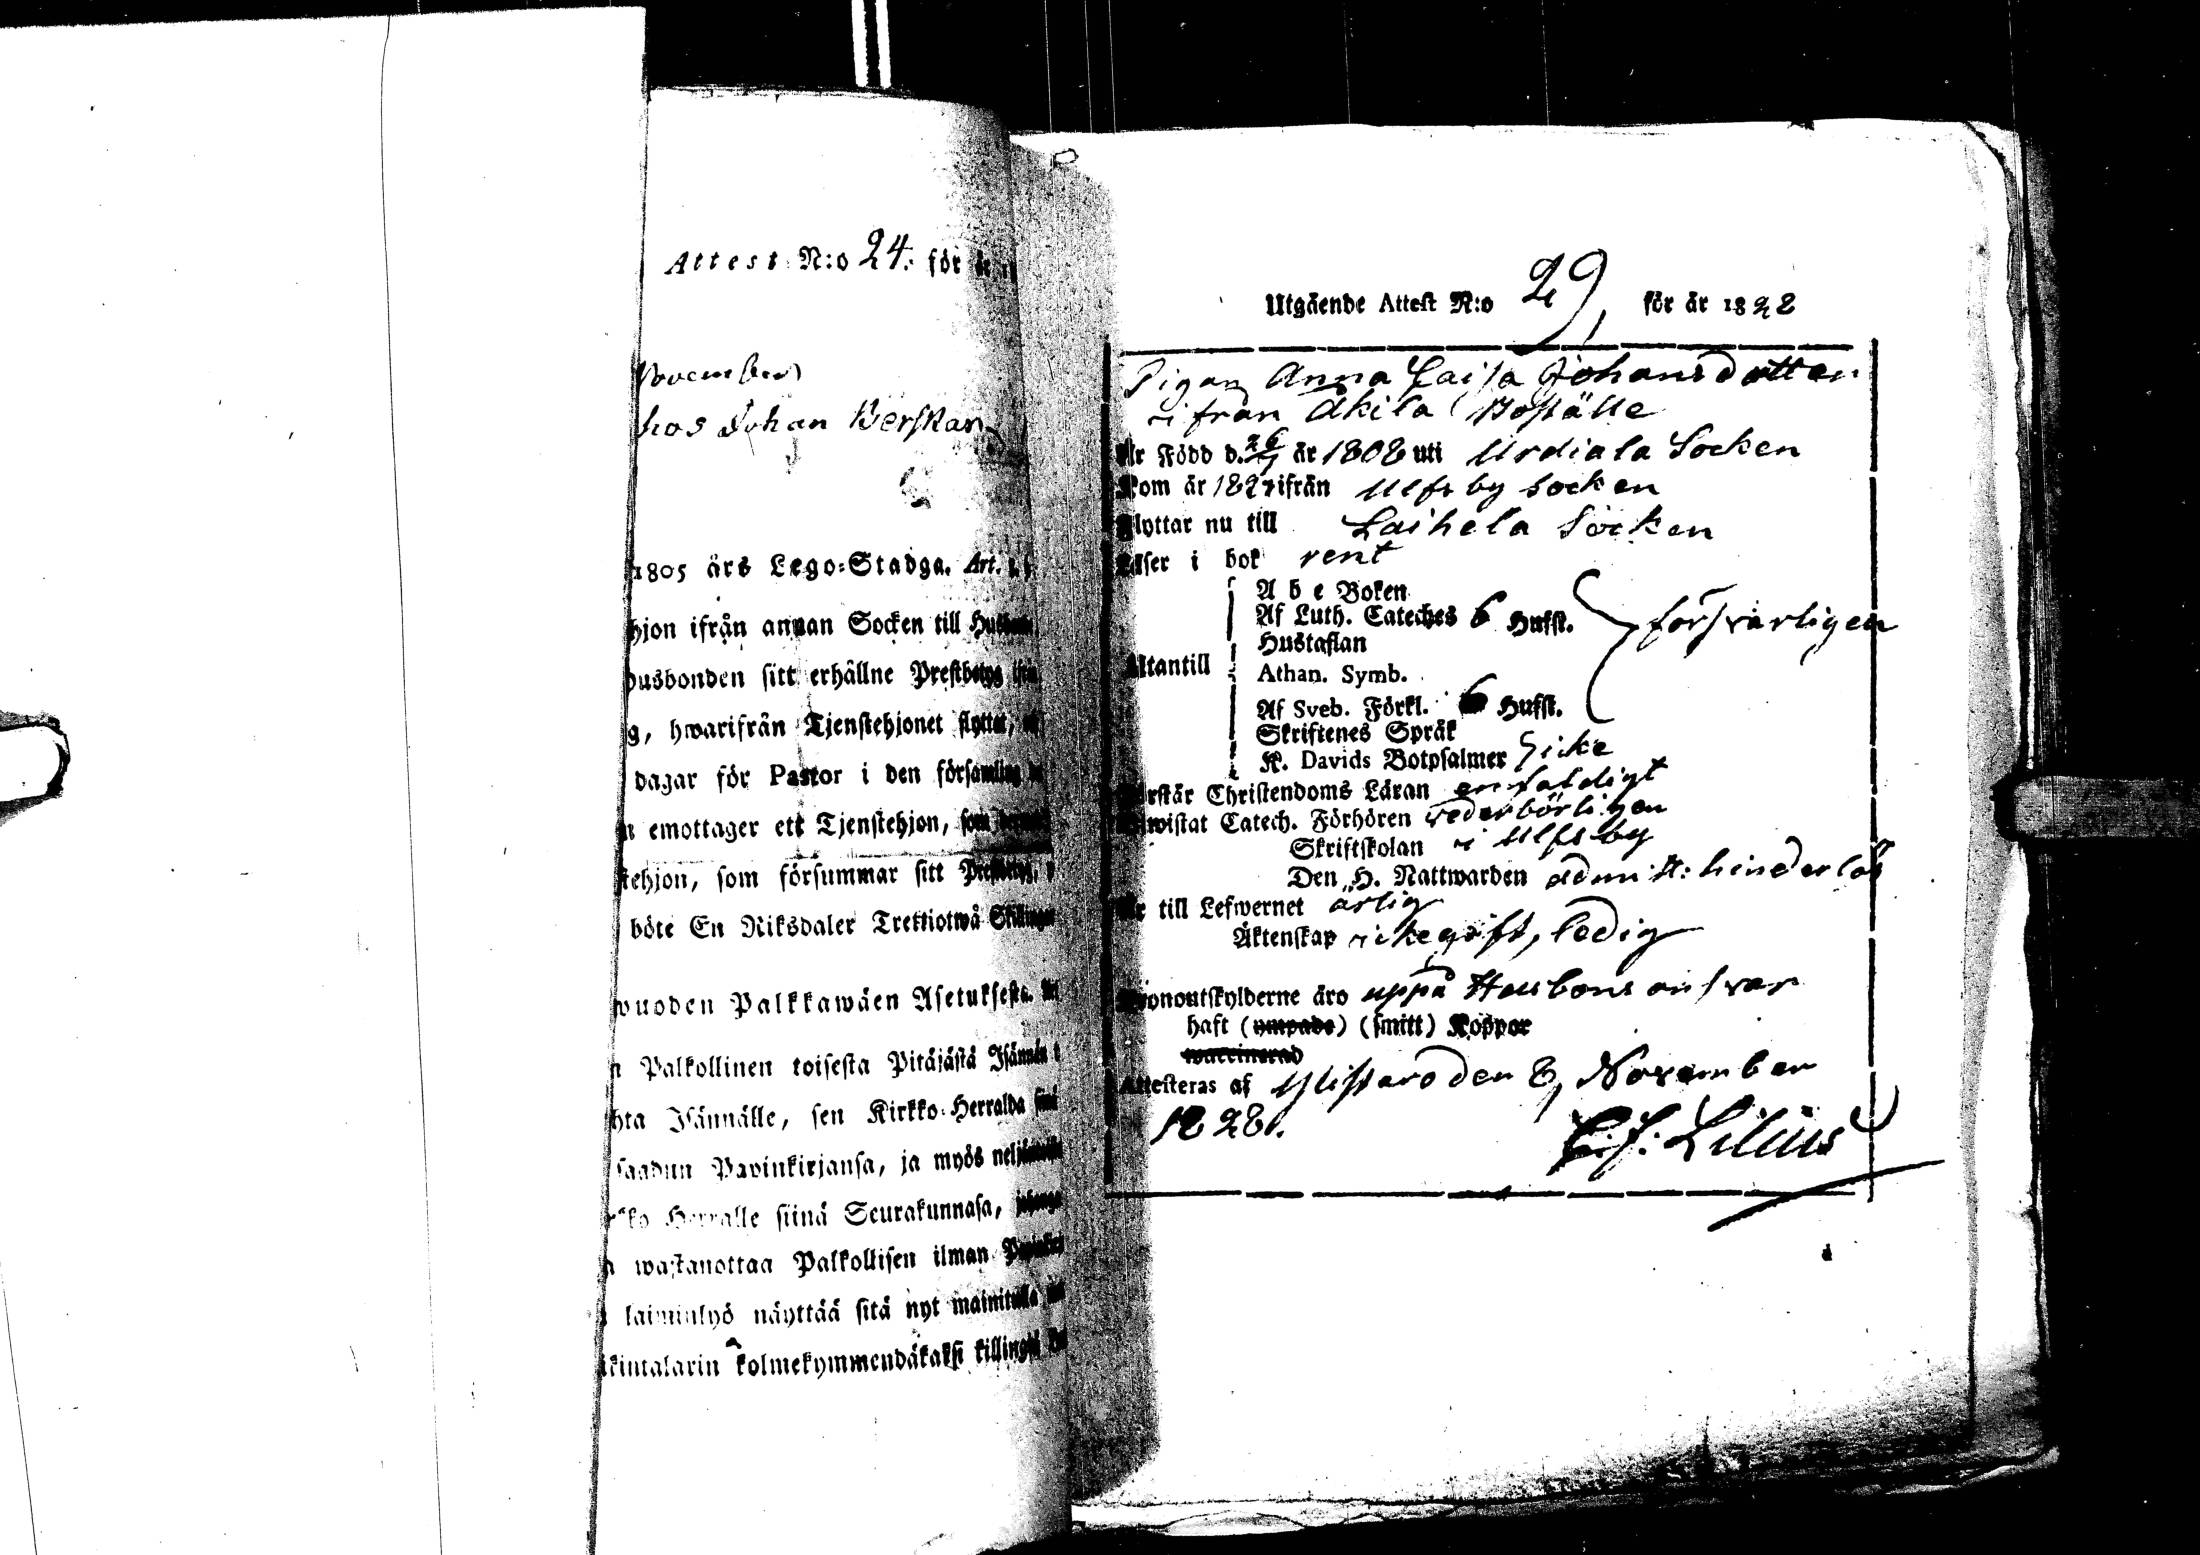 Attest N:o 24. för år
November
hos Johan Berskar
1805 års Lego-Stadga. Art. 1.
hjon ifrån annan Socken till
husbonden sitt erhållne Prestbetyg
g, hwarifrån Tjenstehjonet flyttat,
dagar för Pastor i den församling
n emottager ett Tjenstehjon, som
stehjon, som försummar sitt Prestbetyg,
böte En Riksdaler Trettiotwå Skillingar
wuoden Palkkawäen Asetuksesta.
n Palkollinen toisesta Pitäjästä Isännän
hta Isännälle, sen Kirkko-Herralda
saadun Pavinkirjansa, ja myös
Herralle siinä Seurakunnasa,
wastanottaa Palkollisen ilman
laiminlyö näyttää sitä nyt mainitulla
ikintalarin kolmekymmendäkaksi killingiä
Utgående Attest N:o 29, för år 1828
Pigan Anna Caisa Johansdotter
ifrån Äkila Boställe
Är Född d. 26/1 år 1808 uti Urdiala Socken
Kom år 1827 ifrån Ulfsby socken
Flyttar nu till Laihela Socken
Läser i bok rent
A b e Boken
Af Luth. Cateches 6 Hufst. försvarligen
Hustaflan
Utantill Athan. Symb.
Af Sveb. Förkl. 6 Hufst.
Skriftenes Språk
K. Davids Botpsalmer icke
Förstår Christendoms Läran enfaldigt
Biwistat Catech. Förhören vederbörligen
Skriftskolan i Ulfsby
Den H. Nattwarden admitt: hinderlös
Är till Lefwernet ärlig
Äktenskap icke gift, ledig
Kronoutskylderne äro uppå Husbons ansvar
haft (ympade) (smitt) Koppor
waccinerad
Attesteras af Ylistaro den 8, November
1828.
C. J: Lilius